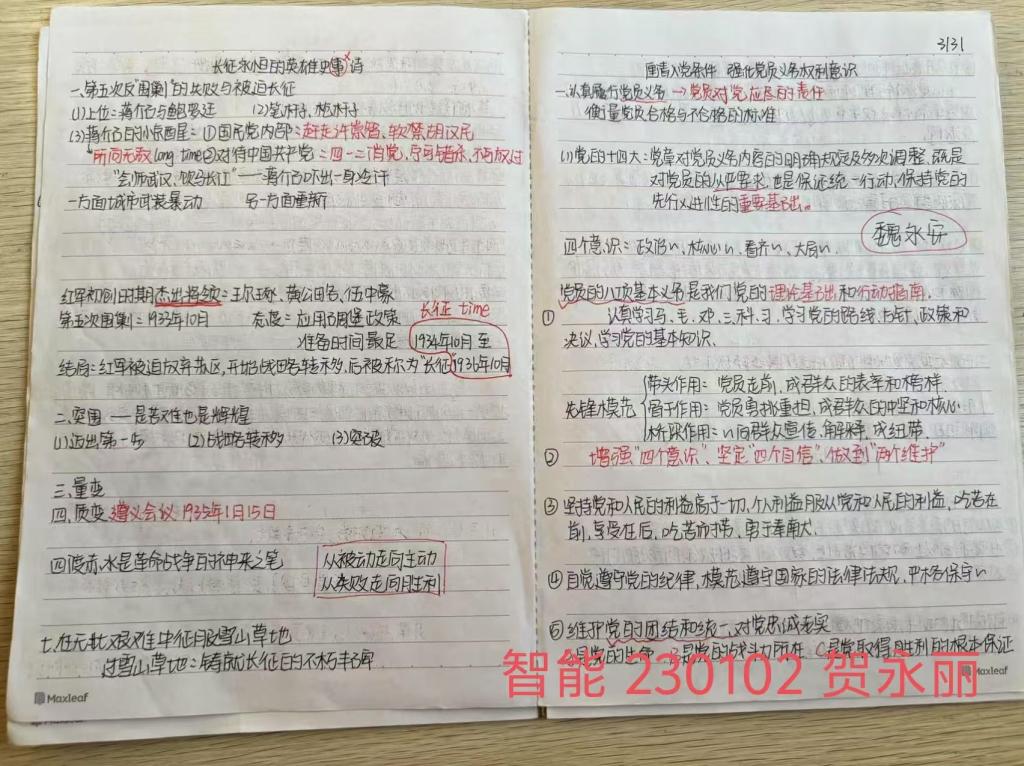 长征永恒的英雄史事诗
一、第五次反"围剿"的失败与被迫长征
(1)上位:蒋介石与鲍罗廷 (2)笔杆子、枪杆子
(3)蒋介石的小京图屋:①国民党内部:赶走许崇智、软禁胡汉民
"所向无敌"long time②对待中国共产党:四一二清党、宁可错杀、不可放过
"会师武汉、饮马长江"——蒋介石吓出一身冷汗
一方面城市武装暴动 另一方面重新
红军初创时期杰出将领:王尔琢、黄公略、伍中豪
长征 time
第五次围剿:1933年10月 态度:应用碉堡政策
准备时间最足 1934年10月至
结局:红军被迫放弃苏区,开始战略转移,后被称为"长征" 1936年10月
二、突围——是苦难也是辉煌
(1)迈出第一步 (2)战略转移 (3)突破
三、量变
四、质变 遵义会议 1935年1月15日
四渡赤水是革命战争的神来之笔
从被动走向主动
从失败走向胜利
七、在无比艰难中征服雪山草地
过雪山草地:铸就长征的不朽丰碑
Maxleaf
3|3|
重清入党条件 强化党员义务权利意识
一、认真履行党员义务→党员对党应尽的责任
衡量党员合格与不合格的标准
(1)党的十四大:党章对党员义务内容的明确规定及多次调整,既是
对党员的从严要求,也是保证统一行动、保持党的
先行义进性的重要基础。
魏永安
四个意识:政治〃、核心〃、看齐〃、大局〃.
党员的八项基本义务是我们党的理论基础和行动指南.
① 认真学习马、毛、邓、三、科、习,学习党的路线、方针、政策和
决议,学习党的基本知识.
先锋模范
带头作用:党员走前,成群众的表率和榜样.
骨干作用:党员勇挑重担,成群众的中坚和核心
桥梁作用:〃向群众宣传、解释,成纽带.
② 增强"四个意识"、坚定"四个自信"、做到"两个维护"
③ 坚持党和人民的利益高于一切,个人利益服从党和人民的利益,吃苦在
前,享受在后,吃苦耐劳,勇于奉献.
④ 自觉遵守党的纪律,模范遵守国家的法律法规,严格保守〃
⑤ 维护党的团结和统一,对党忠诚老实
是党取得胜利的根本保证
智能 230102 贺永丽
Maxleaf